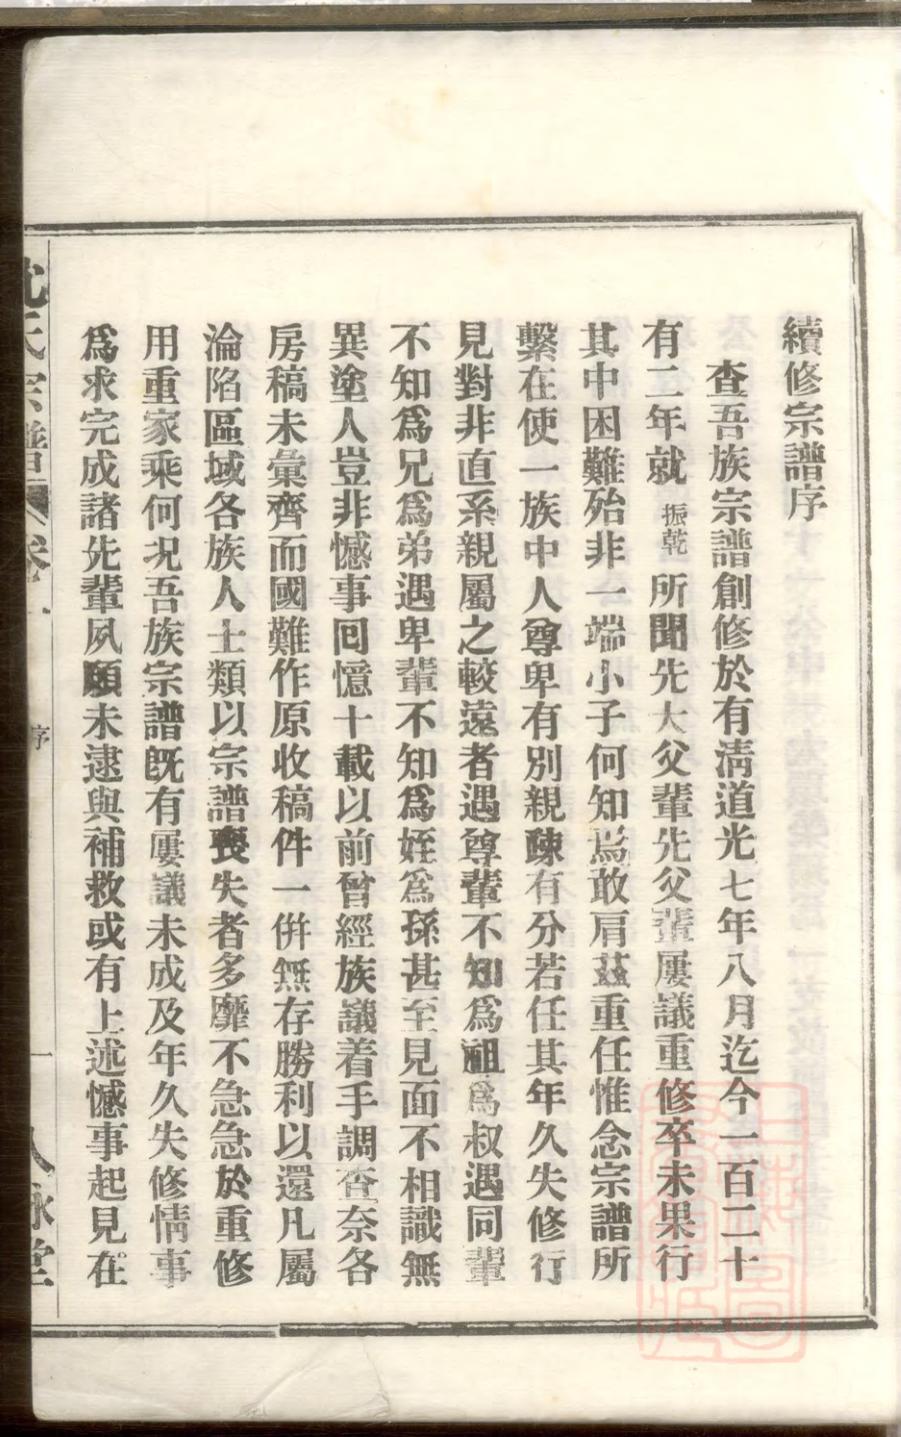 續修宗譜序
查吾族宗譜創修於有淸道光七年八月迄今一百二十
有二年就振乾所聞先大父輩先父輩屢議重修卒未果行
其中困難殆非一端小子何知焉敢肩茲重任惟念宗譜所
繫在使一族中人尊卑有別親疎有分若任其年久失修行
見對非直系親屬之較遠者遇尊輩不知爲祖爲叔遇同輩
不知爲兄爲弟遇卑輩不知爲姪爲孫甚至見面不相識無
異塗人豈非憾事回憶十載以前曾經族議着手調查奈各
房稿未彙齊而國難作原收稿件一併無存勝利以還凡屬
淪陷區域各族人士類以宗譜喪失者多靡不急急於重修
用重家乘何况吾族宗譜旣有屢議未成及年久失修情事
爲求完成諸先輩夙願未逮與補救或有上述憾事起見在
沈氏宗譜 卷一 序 一 八詠堂